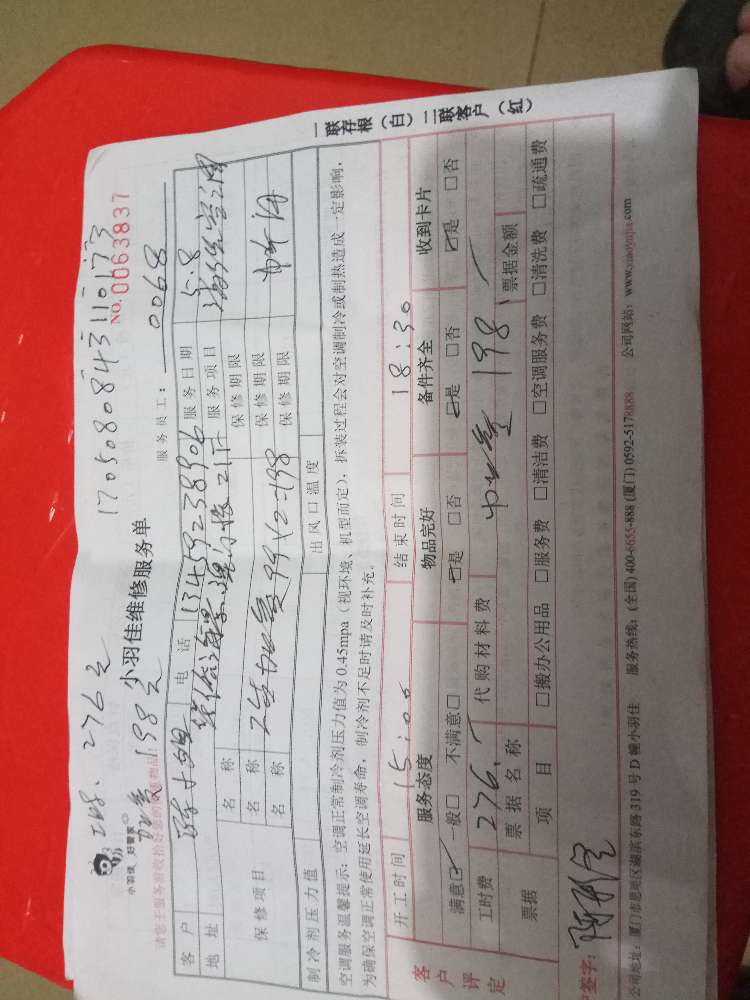 1705080843110173
NO. 0063837
248. 276元
加氟 198元
小羽佳 好管家
小羽佳维修服务单
服务员工: 0068
客户 电话 13459238906 服务日期 5.8
地址 服务项目
保修项目 名称 保修期限
名称 保修期限
名称 99×2=198 保修期限
制冷剂压力值 出风口温度
空调服务温馨提示:空调正常制冷剂压力值为0.45mpa(视环境、机型而定),拆装过程会对空调制冷或制热造成一定影响,
为确保空调正常使用延长空调寿命,制冷剂不足时请及时补充。
开工时间 15:00 结束时间 18:30
客户评定 服务态度 物品完好 备件齐全 收到卡片
满意☑ 一般□ 不满意□ ☑是 □否 ☑是 □否 ☑是 □否
工时费 276. 代购材料费 加氟 198
票据 票据名称 票据金额
项目 □搬办公用品 □服务费 □清洁费 □空调服务费 □清洗费 □疏通费
签字:
公司地址:厦门市思明区湖滨东路319号D幢小羽佳 服务热线:(全国)400-6655-888 (厦门)0592-5178888 公司网站:www.xiaoyujia.com
一联存根(白)二联客户(红)